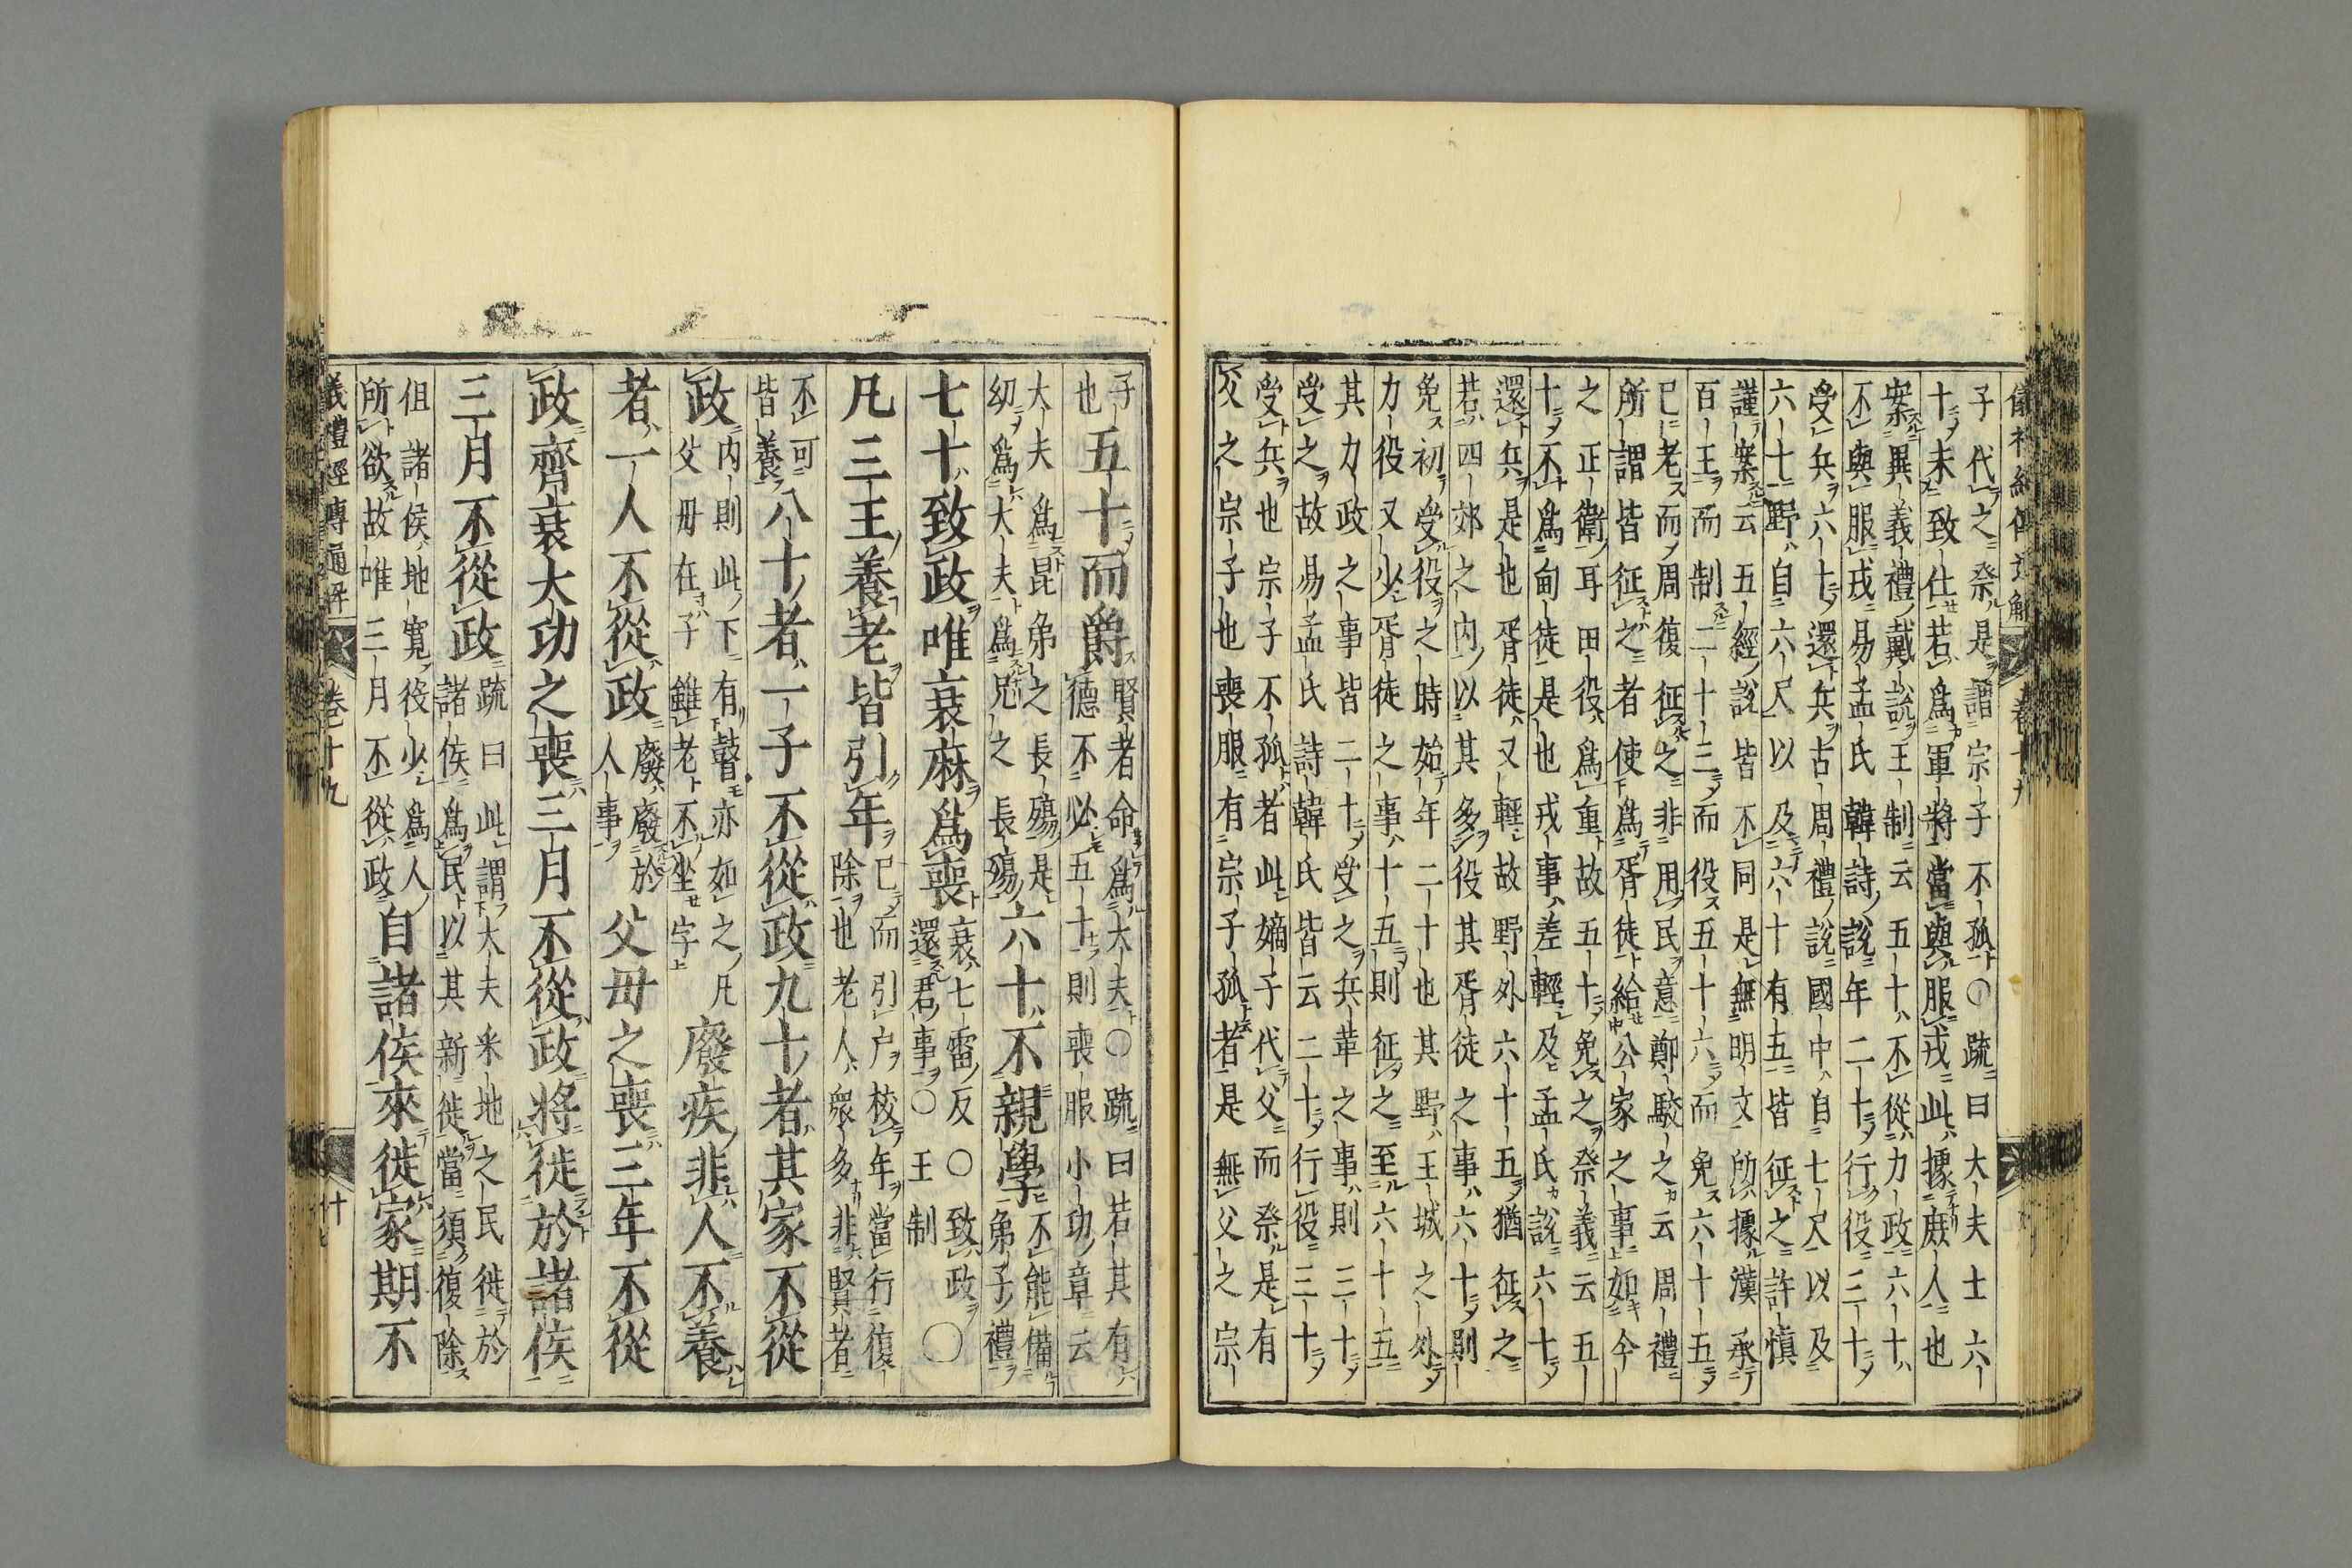 儀禮經傳通解　卷十九
子代之祭是謂宗子不孤〇疏曰大夫士六
十未致仕若爲軍將當與服戎此據庶人也
案異義禮戴説王制云五十不從力政六十
不與服戎易孟氏韓詩説年二十行役三十
受兵六十還兵古周禮説國中自七尺以及
六十野自六尺以及六十有五皆征之許慎
謹案云五經説皆不同是無明文所據漢承
百王而制二十三而役五十六而免六十五
已老而周復征之非用民意鄭駮之云周禮
所謂皆征之者使爲胥徒給公家之事如今
之正衛耳田役爲重故五十免之祭義云五
十不爲甸徒是也戎事差輕及孟氏説六十
還兵是也胥徒又輕故野外六十五猶征之
若四郊之内以其多役其胥徒之事六十則
免初受役之時始年二十也其野王城之外
力役又少胥徒之事十五則征之至六十五
其力政之事皆二十受之兵革之事則三十
受之故易孟氏詩韓氏皆云二十行役三十
受兵也宗子不孤者此嫡子代父而祭是有
父之宗子也喪服有宗子孤者是無父之宗
子也五十而爵賢者命爲大夫〇疏曰若其有德不必五十則喪服小功章云
大夫爲昆弟之長殤是幼爲大夫爲兄之長殤六十不親學不能備弟子禮
七十致政唯衰麻爲喪衰七雷反〇致政還君事〇王制〇
凡三王養老皆引年已而引户校年當行復除也老人衆多非賢者
不可皆養八十者一子不從政九十者其家不從
政内則此下有瞽亦如之凡父母在子雖老不坐字廢疾非人不養
者一人不從政廢廢於人事父母之喪三年不從
政齊衰大功之喪三月不從政將徙於諸侯
三月不從政疏曰此謂大夫采地之民徙於諸侯爲民以其新徙當須復除
但諸侯地寬役少爲人所欲故唯三月不從政自諸侯來徙家期不
儀禮經傳通解　卷十九　十